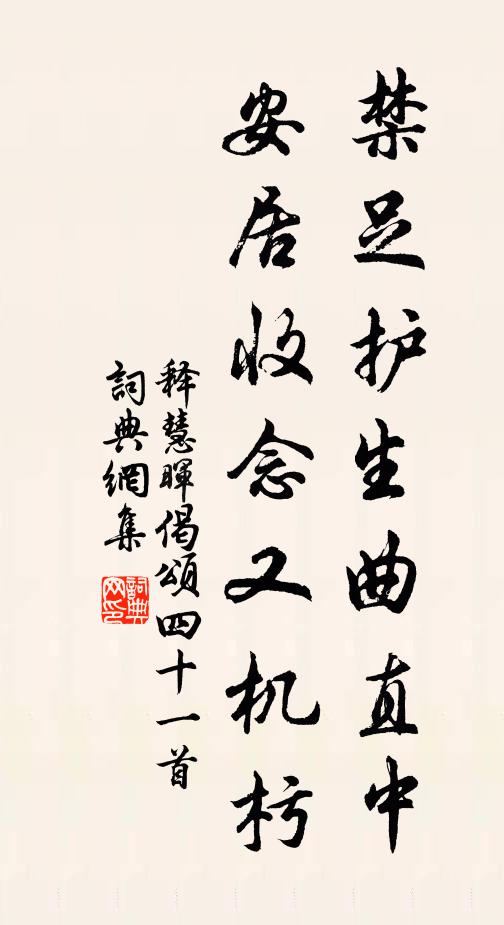 禁足护生曲直中
安居收念又机杇
释慧暉偈頌四十一首
詞典網集
詞典
网印